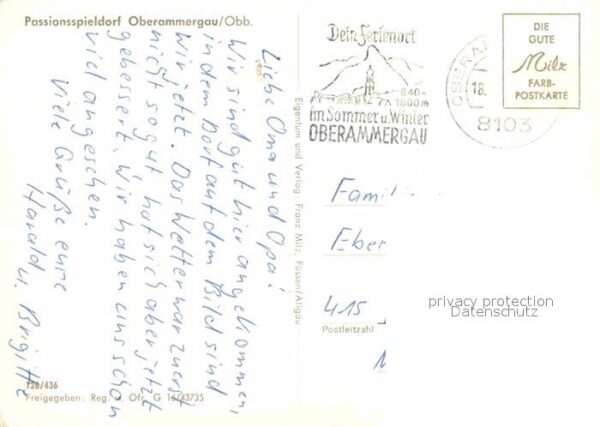 Passionsspieldorf Oberammergau/Obb.
Liebe Oma und Opa!
Wir sind gut hier angekommen,
in dem Dorf auf dem Bild sind
wir jetzt. Das Wetter war zuerst
nicht so gut hat sich aber jetzt
gebessert. Wir haben uns schon
viel angesehen.
Viele Grüße eure
Harald u. Brigitte
128/436
Freigegeben: Reg. v. Ofr. G 16/43735
Eigentum und Verlag Franz Milz, Füssen/Allgäu
Dein Ferienort
840-
1800m
im Sommer u. Winter
OBERAMMERGAU
OBERAM
18.
8103
DIE
GUTE
Milz
FARB-
POSTKARTE
Famil
Eber
415
Postleitzahl
privacy protection
Datenschutz